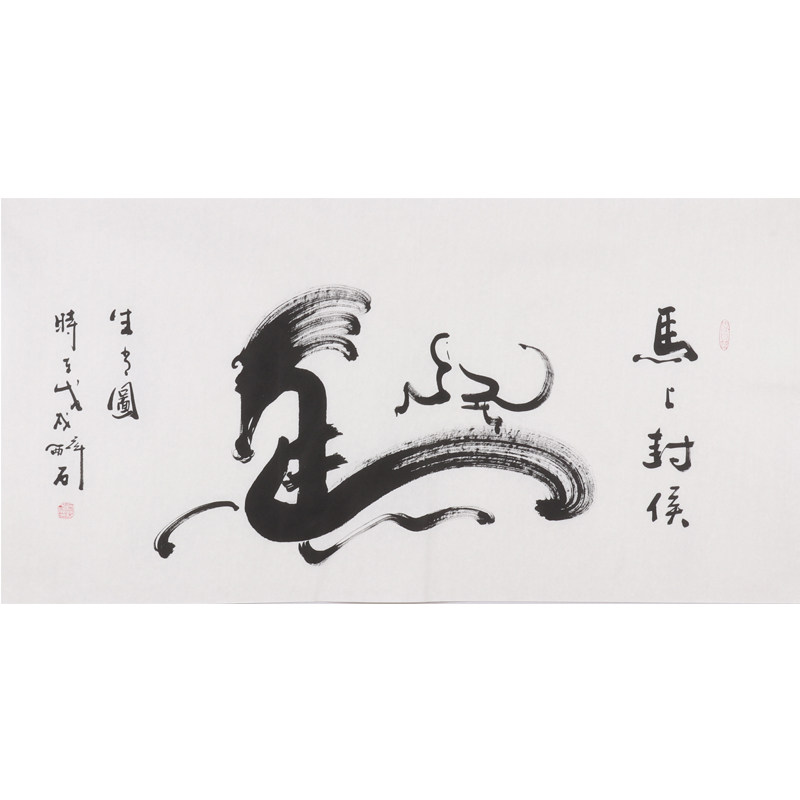 馬上封侯
生肖圖
時于戊戌年
雨石